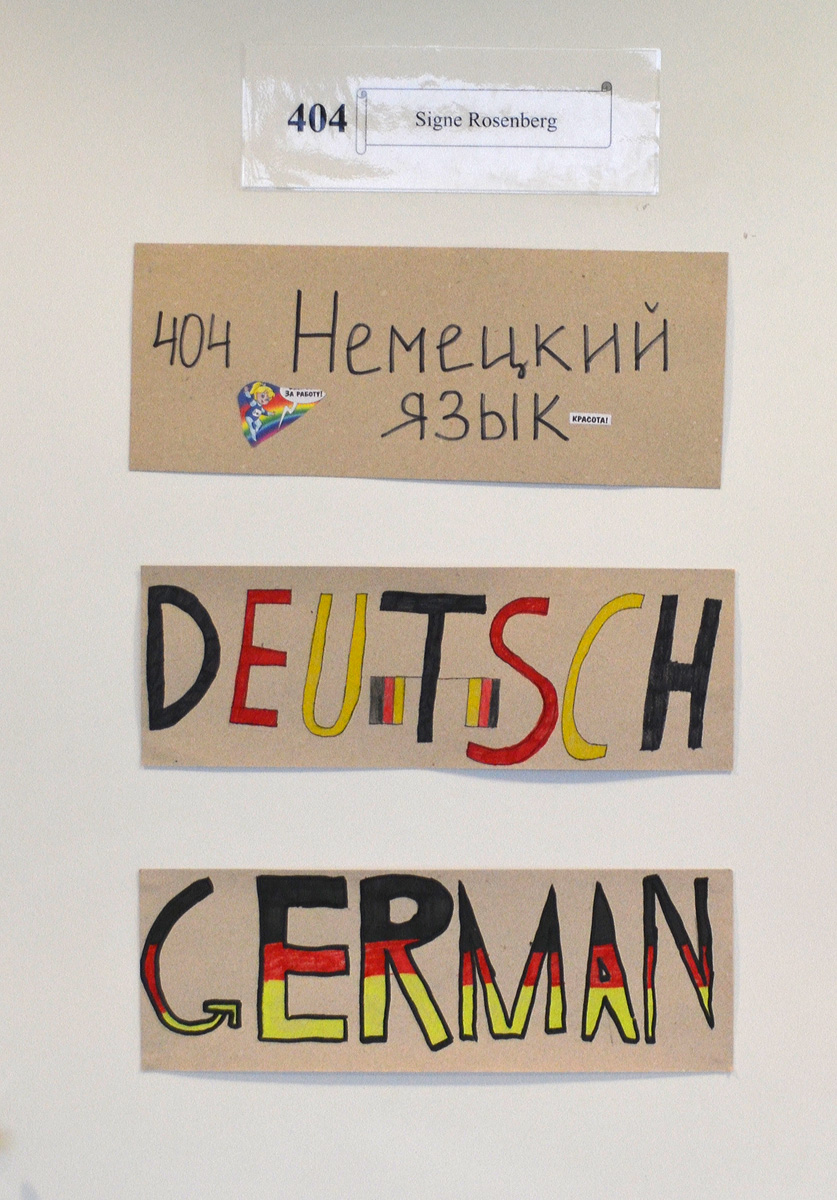 404 Signe Rosenberg
404 Немецкий
ЗА РАБОТУ!
язык КРАСОТА!
DEUTSCH
GERMAN